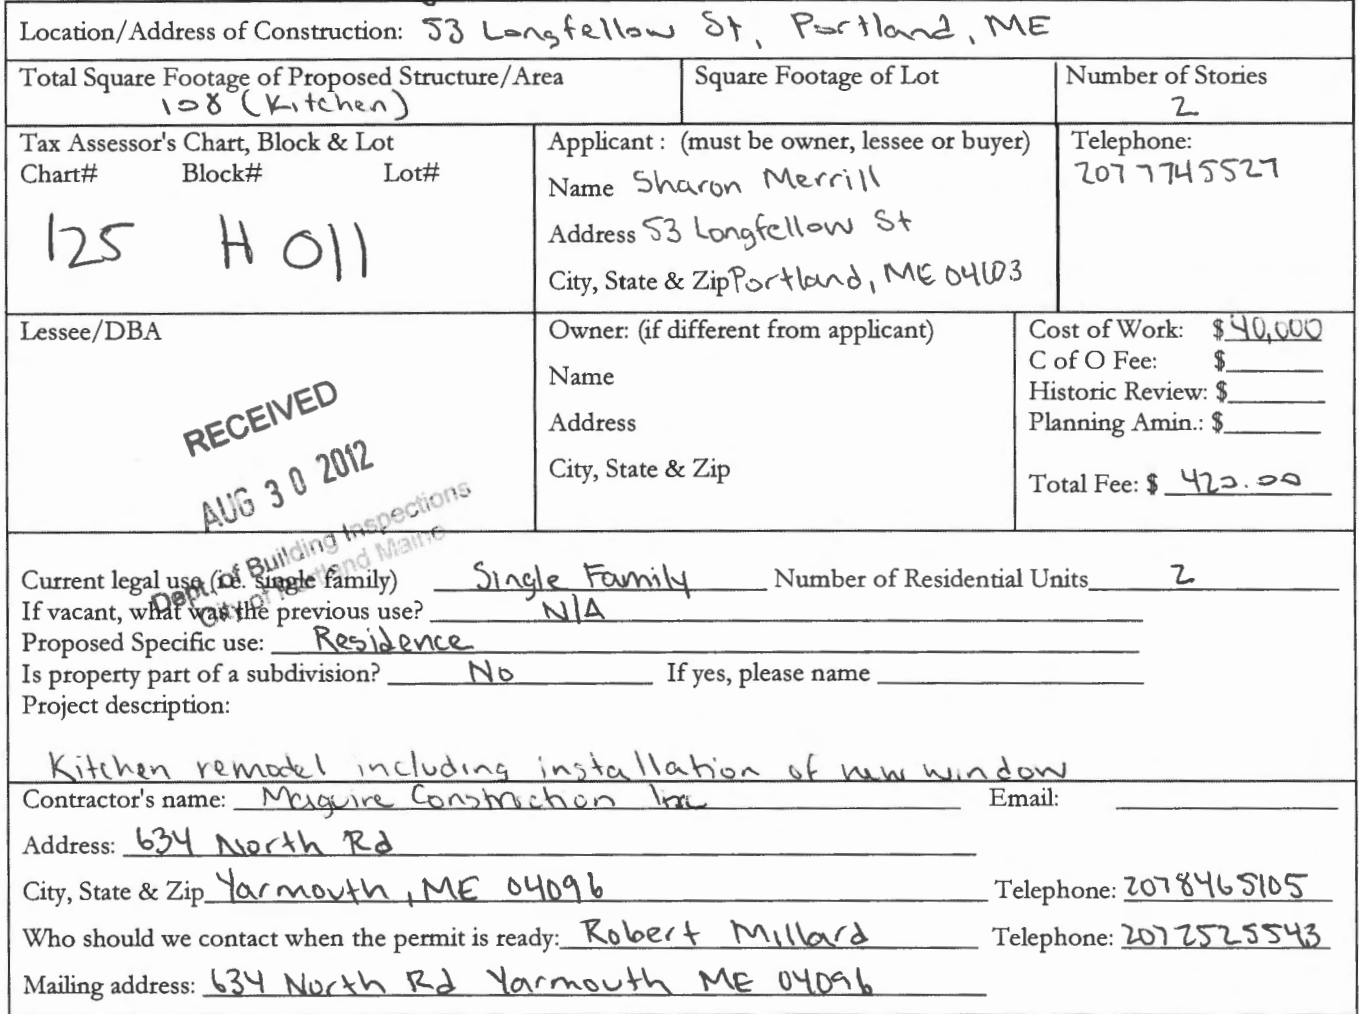 Location/Address of Construction: 53 Longfellow St, Portland, ME
Total Square Footage of Proposed Structure/Area
108 (Kitchen)
Square Footage of Lot
Number of Stories
2
Tax Assessor's Chart, Block & Lot
Chart# Block# Lot#
125 H 011
Applicant : (must be owner, lessee or buyer)
Name Sharon Merrill
Address 53 Longfellow St
City, State & Zip Portland, ME 04103
Telephone:
2077745527
Lessee/DBA
RECEIVED
AUG 30 2012
Dept. of Building Inspections
City of Portland Maine
Owner: (if different from applicant)
Name
Address
City, State & Zip
Cost of Work: $ 40,000
C of O Fee: $
Historic Review: $
Planning Amin.: $
Total Fee: $ 420.00
Current legal use (i.e. single family) Single Family Number of Residential Units 2
If vacant, what was the previous use? N/A
Proposed Specific use: Residence
Is property part of a subdivision? No If yes, please name
Project description:
Kitchen remodel including installation of new window
Contractor's name: Maguire Construction Inc Email:
Address: 634 North Rd
City, State & Zip Yarmouth, ME 04096 Telephone: 2078465105
Who should we contact when the permit is ready: Robert Millard Telephone: 2072525543
Mailing address: 634 North Rd Yarmouth ME 04096